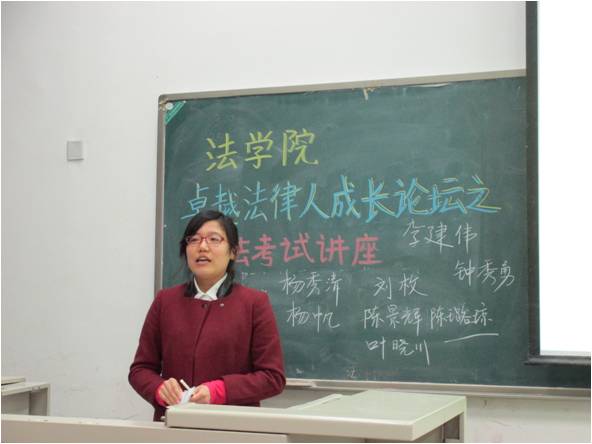 法学院
卓越法律人成长论坛之
法考试讲座
李建伟
杨秀清 刘枚 钟秀勇
杨帆 陈景辉 陈璐琼
叶晓川